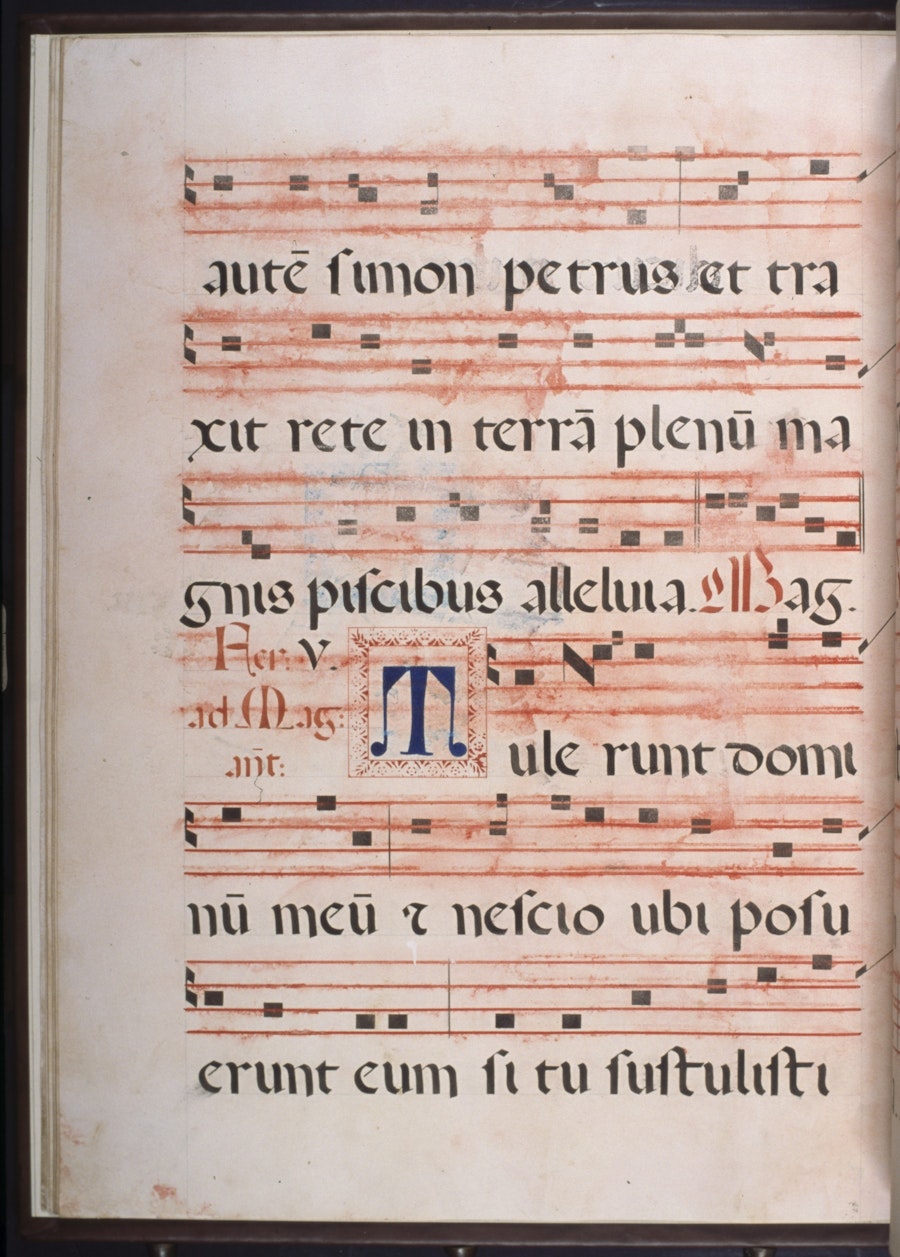 autē ſimon petrus et tra
xit rete in terrā plenū ma
gnis piſcibus alleluia. Mag.
Fer. V.
ad Mag:
añt:
T ule runt domi
nū meū ⁊ neſcio ubi poſu
erunt eum ſi tu ſuſtuliſti